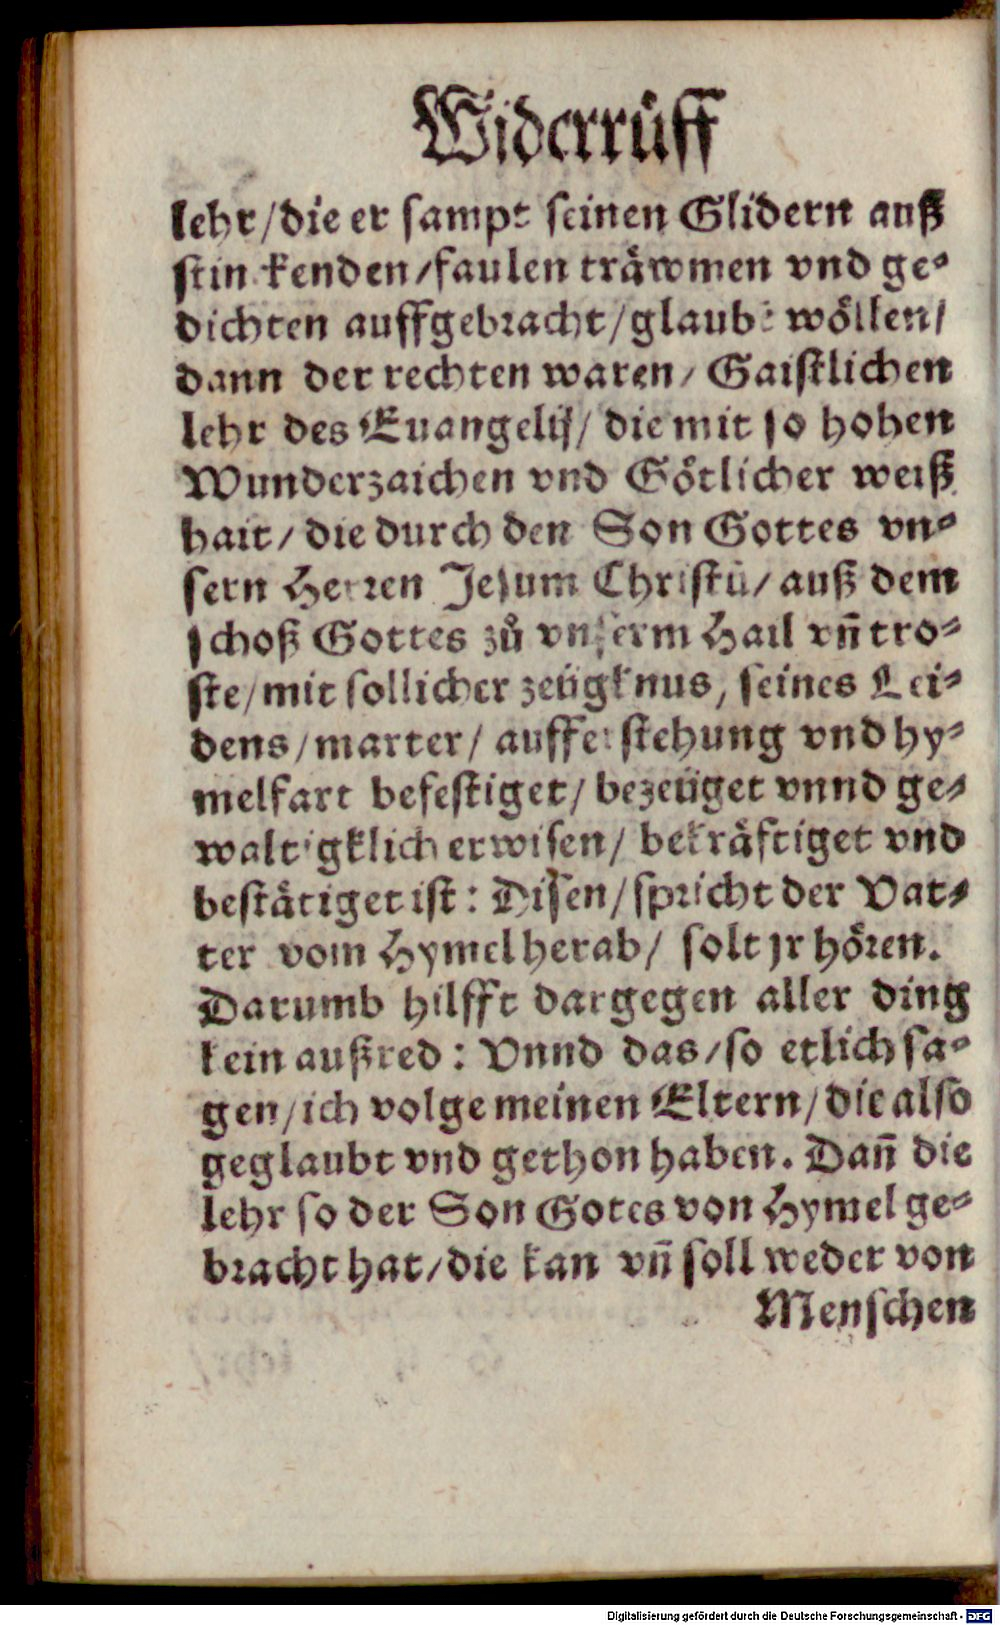 Widerrůff
lehr/die er sampt seinen Glidern auß
stin kenden/faulen träwmen vnd ge⸗
dichten auffgebracht/glaubē wöllen/
dann der rechten waren/ Gaistlichen
lehr des Euangelij/ die mit so hohen
Wunderzaichen vnd Götlicher weiß
hait/ die durch den Son Gottes vn⸗
sern Herren Jesum Christū/ auß dem
schoß Gottes zů vnserm Hail vn̄ tro⸗
ste/mit sollicher zeügknus, seines Lei⸗
dens/marter/ aufferstehung vnd hy⸗
melfart befestiget/ bezeüget vnnd ge⸗
waltigklich erwisen/ bekräftiget vnd
bestätiget ist: Disen/spricht der Vat⸗
ter vom Hymel herab/ solt jr hören.
Darumb hilfft dargegen aller ding
kein außred: Vnnd das/so etlich sa⸗
gen/ich volge meinen Eltern/die also
geglaubt vnd gethon haben. Dan̄ die
lehr so der Son Gotes von Hymel ge⸗
bracht hat/die kan vn̄ soll weder von
Menschen
Digitalisierung gefördert durch die Deutsche Forschungsgemeinschaft - DFG